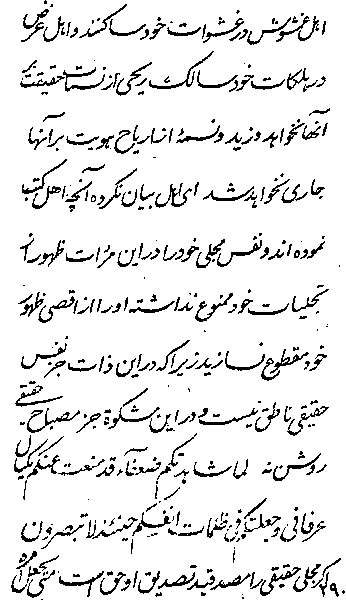 اهل غشوش در غشوات خود ساکنند و اهل غرض
در هلکات خود سالک ریحی از نسمات حقیقت بر
آنها نخواهد وزید و نسمهٔ از اریاح هویت بر آنها
جاری نخواهد شد ای اهل بیان نکرده آنچه اهل کتب
نموده‌اند و نفس مجلی خود را در این مرآت ظهور از
تجلیات خود ممنوع نداشته او را از اقصی ظهور
خود مقطوع نسازید زیرا که در این ذات جز نفس
حقیقی ناطق نیست و در این مشکوة جز مصباح حقیقی
روشن نه لما شاهدتکم ضعفآء قد منعت عنکم مکیال
عرفانی و جعلتکم فی ظلمات انفسکم حینئذ لا تبصرون
۹۰ اگر مجلی حقیقی را مصدقید تصدیق او حق است متی یجعل امره